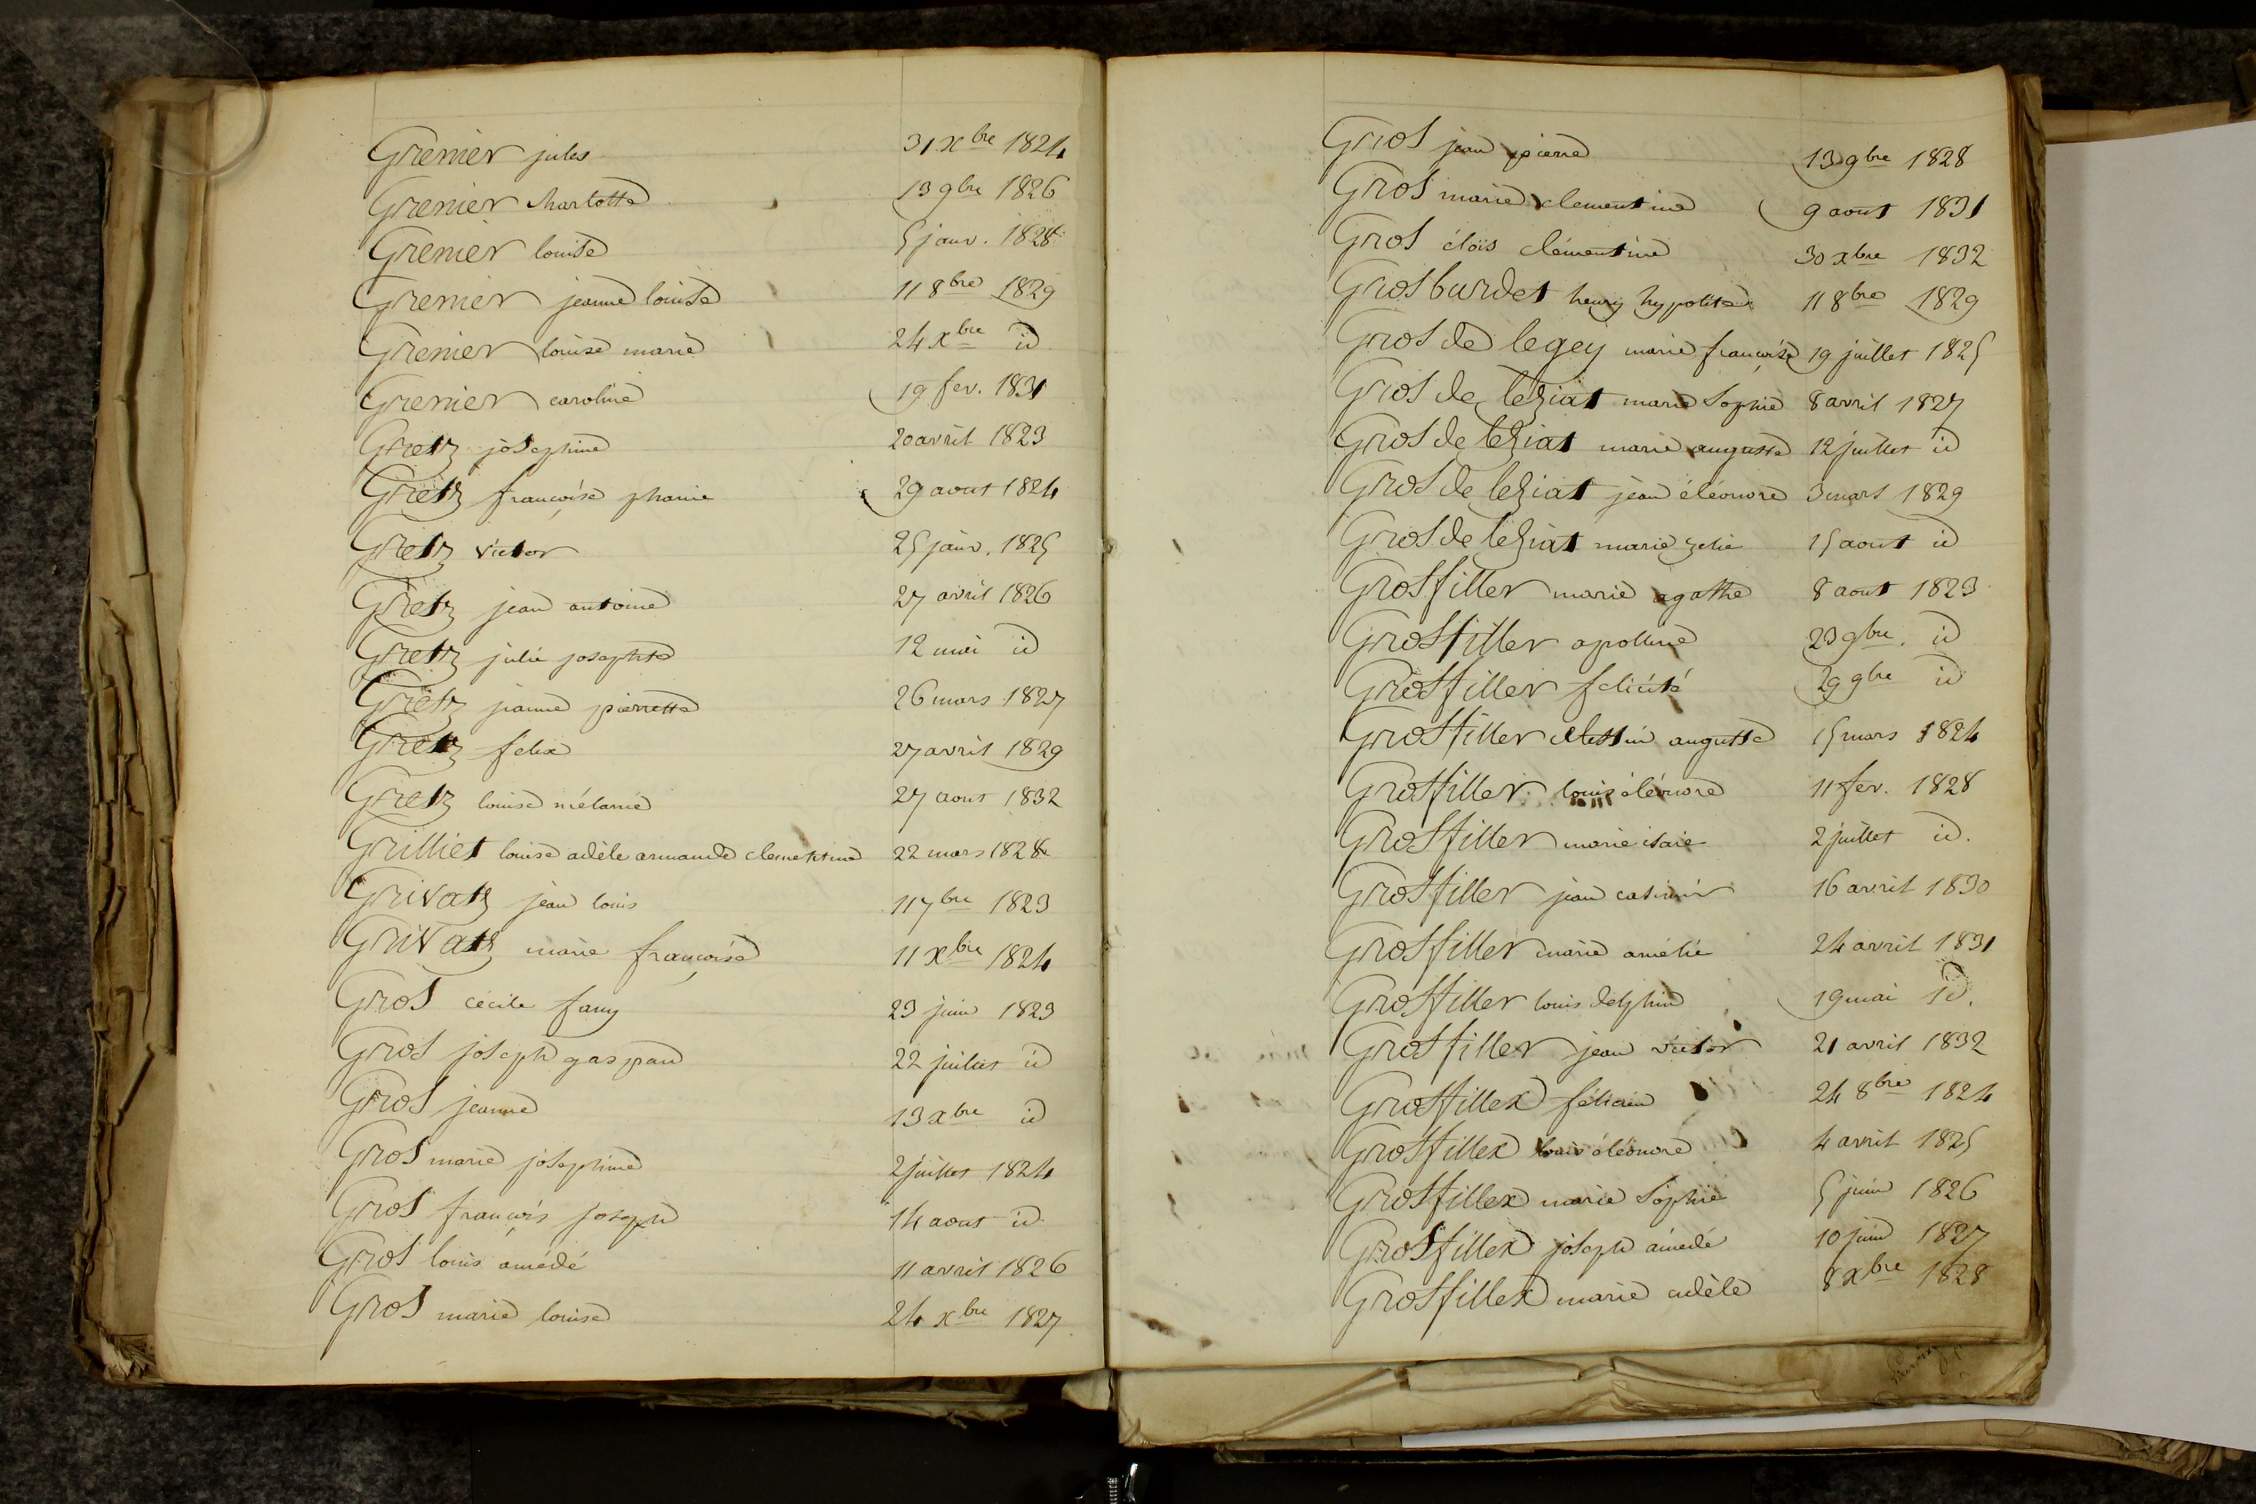 Grenier jules 31 xbre 1824
Grenier charlotte 13 9bre 1826
Grenier louise 5 janv. 1828
Grenier jeanne louise 11 8bre 1829
Grenier louise marie 24 xbre id
Grenier caroline 19 fev. 1831
Gretz josephine 20 avril 1823
Gretz françoise phanie 29 aout 1824
Gretz victor 25 janv. 1825
Gretz jean antoine 27 avril 1826
Gretz julie josephte 12 mai id
Gretz jeanne pierrette 26 mars 1827
Gretz felix 27 avril 1829
Gretz louise mélanie 27 aout 1832
Grilliet louise adèle armande clementine 22 mars 1828
Grivatz jean louis 11 7bre 1823
Grivatz marie françoise 11 xbre 1824
Gros cécile fany 23 juin 1823
Gros joseph gaspard 22 juillet id
Gros jeanne 13 xbre id
Gros marie josephine 2 juillet 1824
Gros françois joseph 14 aout id
Gros louis amédé 11 avril 1826
Gros marie louise 24 xbre 1827
Gros jean pierre 13 9bre 1828
Gros marie clementine 9 aout 1831
Gros élois clémentine 30 xbre 1832
Gros burdet henry hypolite 11 8bre 1829
Gros de legey marie françoise 19 juillet 1825
Gros de leziat marie sophie 8 avril 1827
Gros de leziat marie auguste 12 juillet id
Gros de leziat jean éléonore 3 mars 1829
Gros de leziat marie zelie 15 aout id
Grosfiller marie agathe 8 aout 1823
Grosfiller apolline 23 9bre. id
Grosfiller felicité 29 9bre id
Grosfiller auguste 15 mars 1824
Grosfiller louis éléonore 11 fev. 1828
Grosfiller marie isaie 2 juillet id.
Grosfiller jean casimir 16 avril 1830
Grosfiller marie amélie 24 avril 1831
Grosfiller louis delphin 19 mai id.
Grosfiller jean victor 21 avril 1832
Grosfillex 24 8bre 1824
Grosfillex louis éléonore 4 avril 1825
Grosfillex marie sophie 5 juin 1826
Grosfillex joseph amédé 10 juin 1827
Grosfillex marie adèle 8 xbre 1828